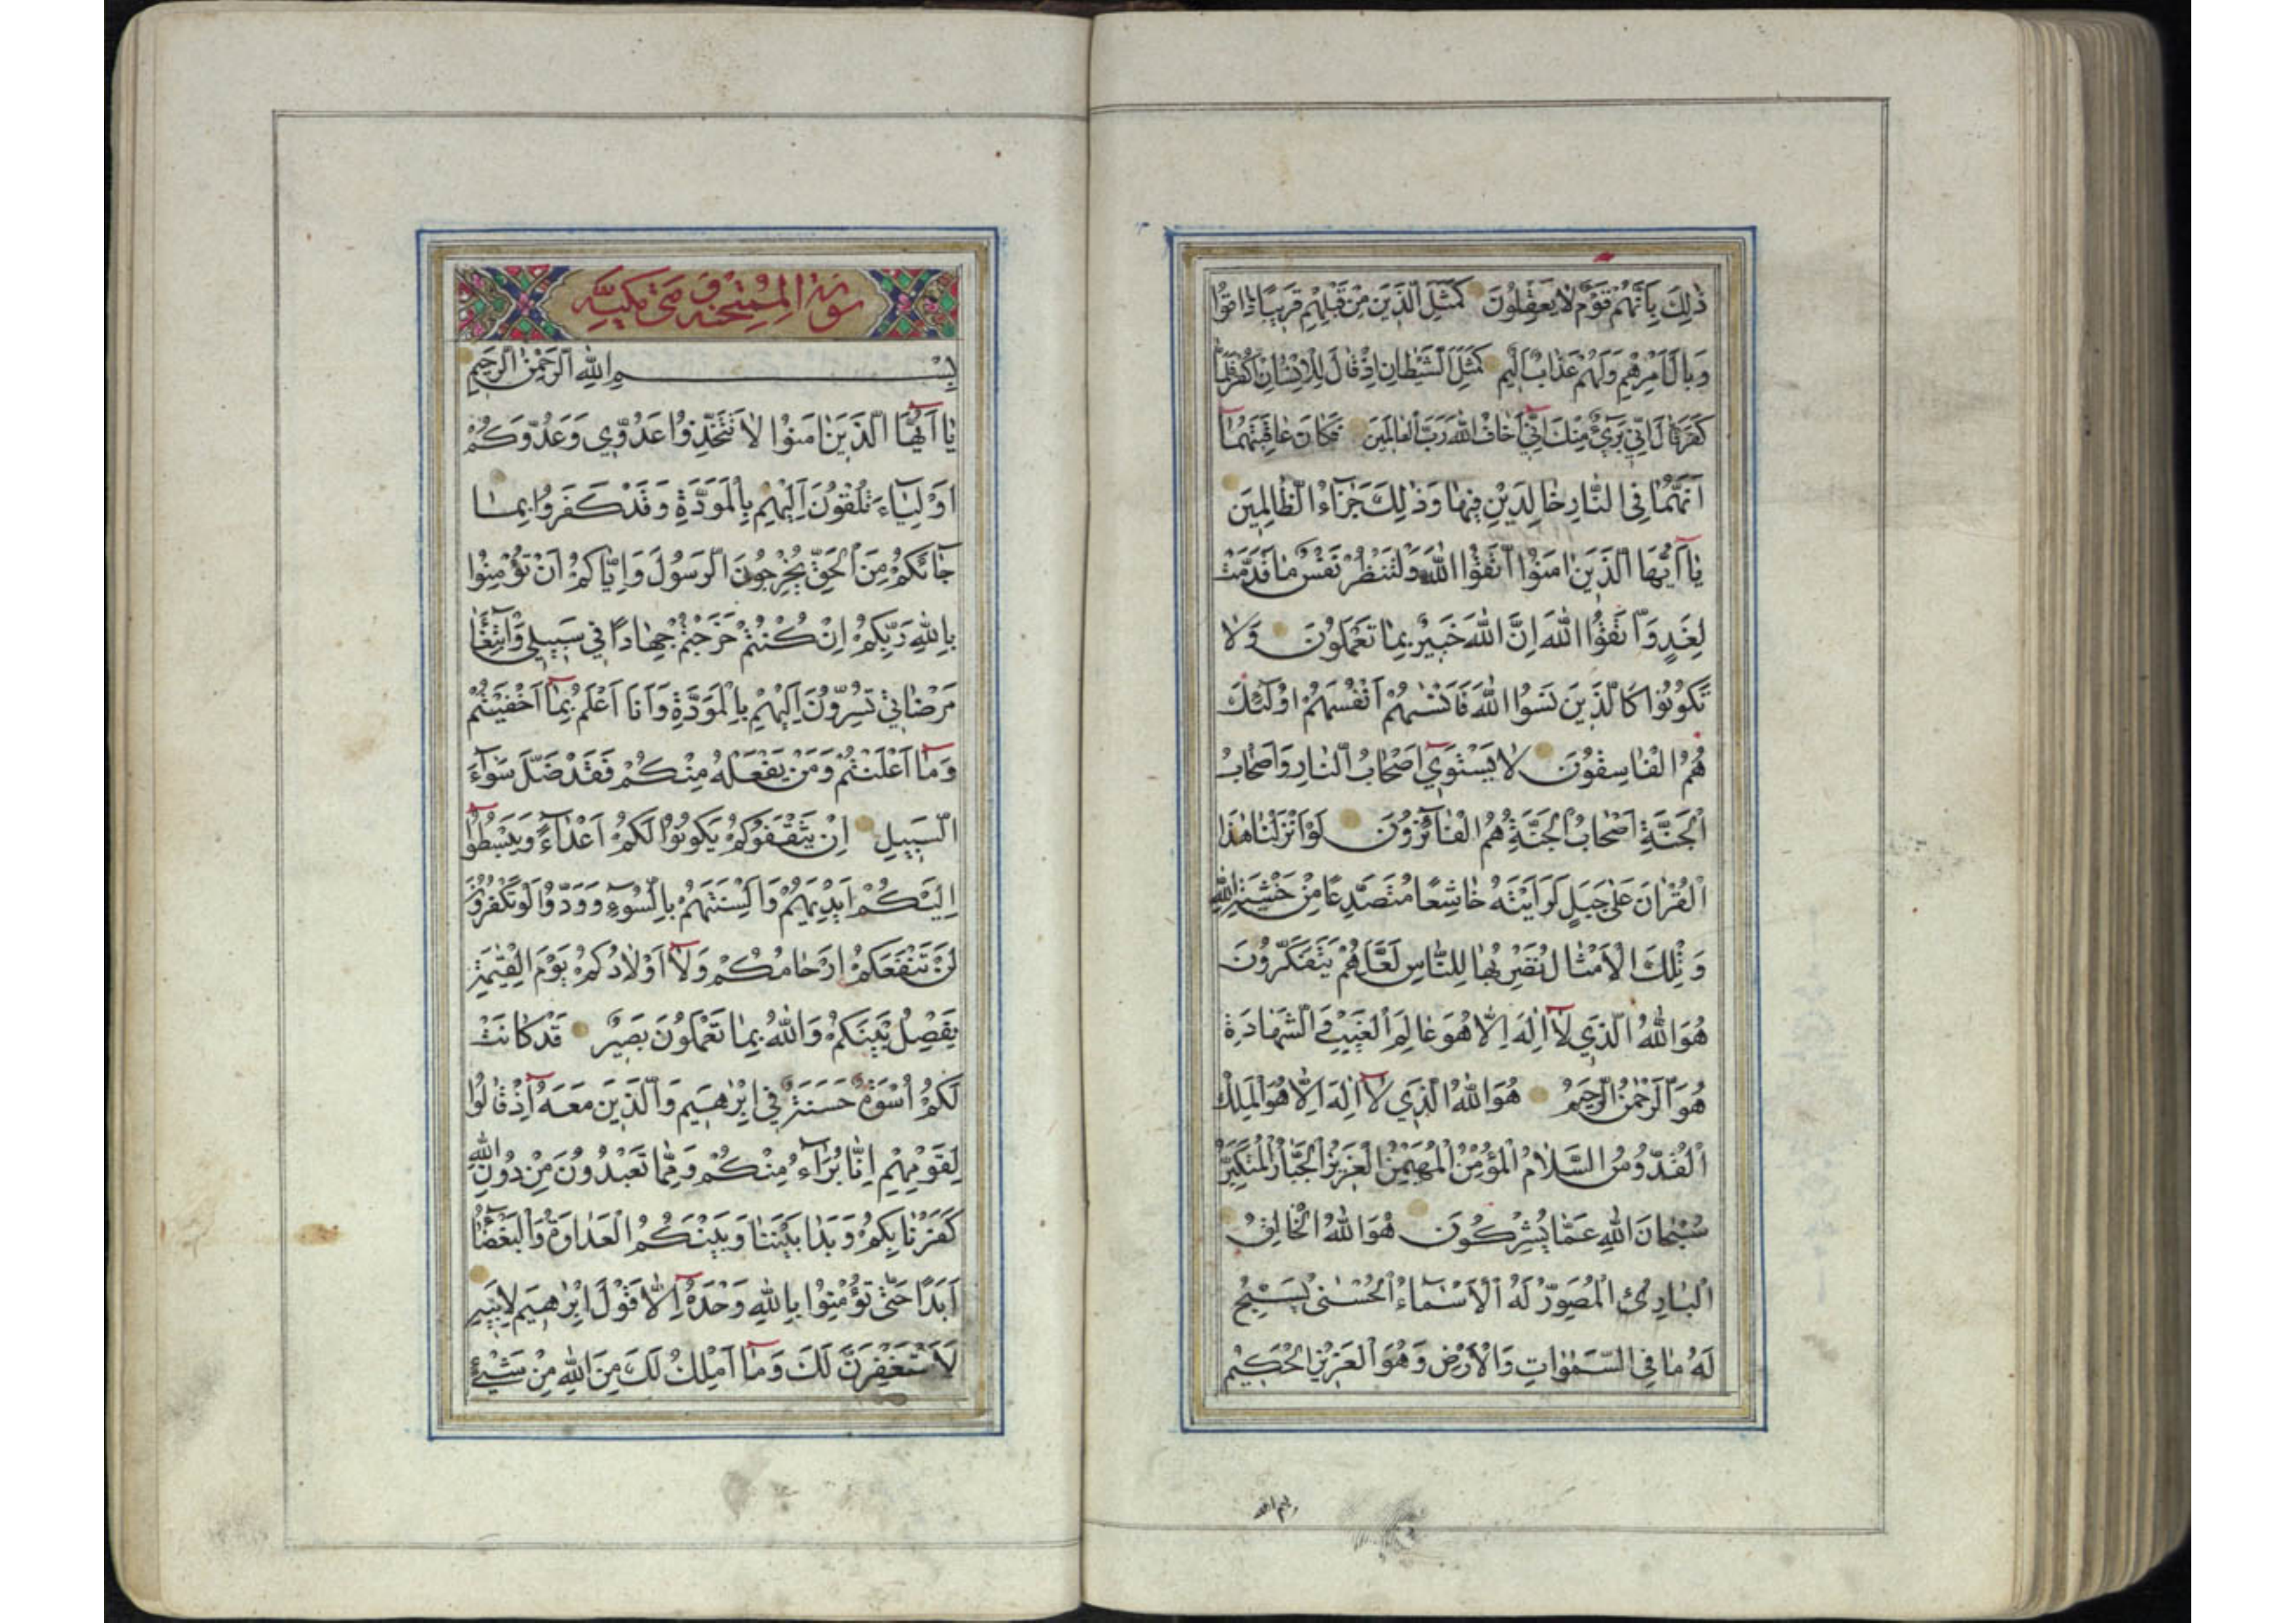 ذٰلِكَ بِاَنَّهُمْ قَوْمٌ لَا يَعْقِلُونَ كَمَثَلِ الَّذِينَ مِنْ قَبْلِهِمْ قَرِيبًا ذَاقُوا
وَبَالَ اَمْرِهِمْ وَلَهُمْ عَذَابٌ اَلِيمٌ كَمَثَلِ الشَّيْطَانِ اِذْ قَالَ لِلْاِنْسَانِ اكْفُرْ فَلَمَّا
كَفَرَ قَالَ اِنِّي بَرِيءٌ مِنْكَ اِنِّي اَخَافُ اللّٰهَ رَبَّ الْعَالَمِينَ فَكَانَ عَاقِبَتَهُمَا
اَنَّهُمَا فِي النَّارِ خَالِدَيْنِ فِيهَا وَذٰلِكَ جَزَاءُ الظَّالِمِينَ
يَا اَيُّهَا الَّذِينَ اٰمَنُوا اتَّقُوا اللّٰهَ وَلْتَنْظُرْ نَفْسٌ مَا قَدَّمَتْ
لِغَدٍ وَاتَّقُوا اللّٰهَ اِنَّ اللّٰهَ خَبِيرٌ بِمَا تَعْمَلُونَ وَلَا
تَكُونُوا كَالَّذِينَ نَسُوا اللّٰهَ فَاَنْسٰيهُمْ اَنْفُسَهُمْ اُولٰئِكَ
هُمُ الْفَاسِقُونَ لَا يَسْتَوِي اَصْحَابُ النَّارِ وَاَصْحَابُ
الْجَنَّةِ اَصْحَابُ الْجَنَّةِ هُمُ الْفَائِزُونَ لَوْ اَنْزَلْنَا هٰذَا
الْقُرْاٰنَ عَلٰى جَبَلٍ لَرَاَيْتَهُ خَاشِعًا مُتَصَدِّعًا مِنْ خَشْيَةِ اللّٰهِ
وَتِلْكَ الْاَمْثَالُ نَضْرِبُهَا لِلنَّاسِ لَعَلَّهُمْ يَتَفَكَّرُونَ
هُوَ اللّٰهُ الَّذِي لَا اِلٰهَ اِلَّا هُوَ عَالِمُ الْغَيْبِ وَالشَّهَادَةِ
هُوَ الرَّحْمٰنُ الرَّحِيمُ هُوَ اللّٰهُ الَّذِي لَا اِلٰهَ اِلَّا هُوَ الْمَلِكُ
الْقُدُّوسُ السَّلَامُ الْمُؤْمِنُ الْمُهَيْمِنُ الْعَزِيزُ الْجَبَّارُ الْمُتَكَبِّرُ
سُبْحَانَ اللّٰهِ عَمَّا يُشْرِكُونَ هُوَ اللّٰهُ الْخَالِقُ
الْبَارِئُ الْمُصَوِّرُ لَهُ الْاَسْمَاءُ الْحُسْنٰى يُسَبِّحُ
لَهُ مَا فِي السَّمٰوَاتِ وَالْاَرْضِ وَهُوَ الْعَزِيزُ الْحَكِيمُ
بسم الله
سورة الممتحنة وهي مكية
بِسْمِ اللّٰهِ الرَّحْمٰنِ الرَّحِيمِ
يَا اَيُّهَا الَّذِينَ اٰمَنُوا لَا تَتَّخِذُوا عَدُوِّي وَعَدُوَّكُمْ
اَوْلِيَاءَ تُلْقُونَ اِلَيْهِمْ بِالْمَوَدَّةِ وَقَدْ كَفَرُوا بِمَا
جَائَكُمْ مِنَ الْحَقِّ يُخْرِجُونَ الرَّسُولَ وَاِيَّاكُمْ اَنْ تُؤْمِنُوا
بِاللّٰهِ رَبِّكُمْ اِنْ كُنْتُمْ خَرَجْتُمْ جِهَادًا فِي سَبِيلِي وَابْتِغَاءَ
مَرْضَاتِي تُسِرُّونَ اِلَيْهِمْ بِالْمَوَدَّةِ وَاَنَا اَعْلَمُ بِمَا اَخْفَيْتُمْ
وَمَا اَعْلَنْتُمْ وَمَنْ يَفْعَلْهُ مِنْكُمْ فَقَدْ ضَلَّ سَوَاءَ
السَّبِيلِ اِنْ يَثْقَفُوكُمْ يَكُونُوا لَكُمْ اَعْدَاءً وَيَبْسُطُوا
اِلَيْكُمْ اَيْدِيَهُمْ وَاَلْسِنَتَهُمْ بِالسُّوءِ وَوَدُّوا لَوْ تَكْفُرُونَ
لَنْ تَنْفَعَكُمْ اَرْحَامُكُمْ وَلَا اَوْلَادُكُمْ يَوْمَ الْقِيٰمَةِ
يَفْصِلُ بَيْنَكُمْ وَاللّٰهُ بِمَا تَعْمَلُونَ بَصِيرٌ قَدْ كَانَتْ
لَكُمْ اُسْوَةٌ حَسَنَةٌ فِي اِبْرٰهِيمَ وَالَّذِينَ مَعَهُ اِذْ قَالُوا
لِقَوْمِهِمْ اِنَّا بُرَآءُ مِنْكُمْ وَمِمَّا تَعْبُدُونَ مِنْ دُونِ اللّٰهِ
كَفَرْنَا بِكُمْ وَبَدَا بَيْنَنَا وَبَيْنَكُمُ الْعَدَاوَةُ وَالْبَغْضَاءُ
اَبَدًا حَتّٰى تُؤْمِنُوا بِاللّٰهِ وَحْدَهُ اِلَّا قَوْلَ اِبْرٰهِيمَ لِاَبِيهِ
لَاَسْتَغْفِرَنَّ لَكَ وَمَا اَمْلِكُ لَكَ مِنَ اللّٰهِ مِنْ شَيْءٍ